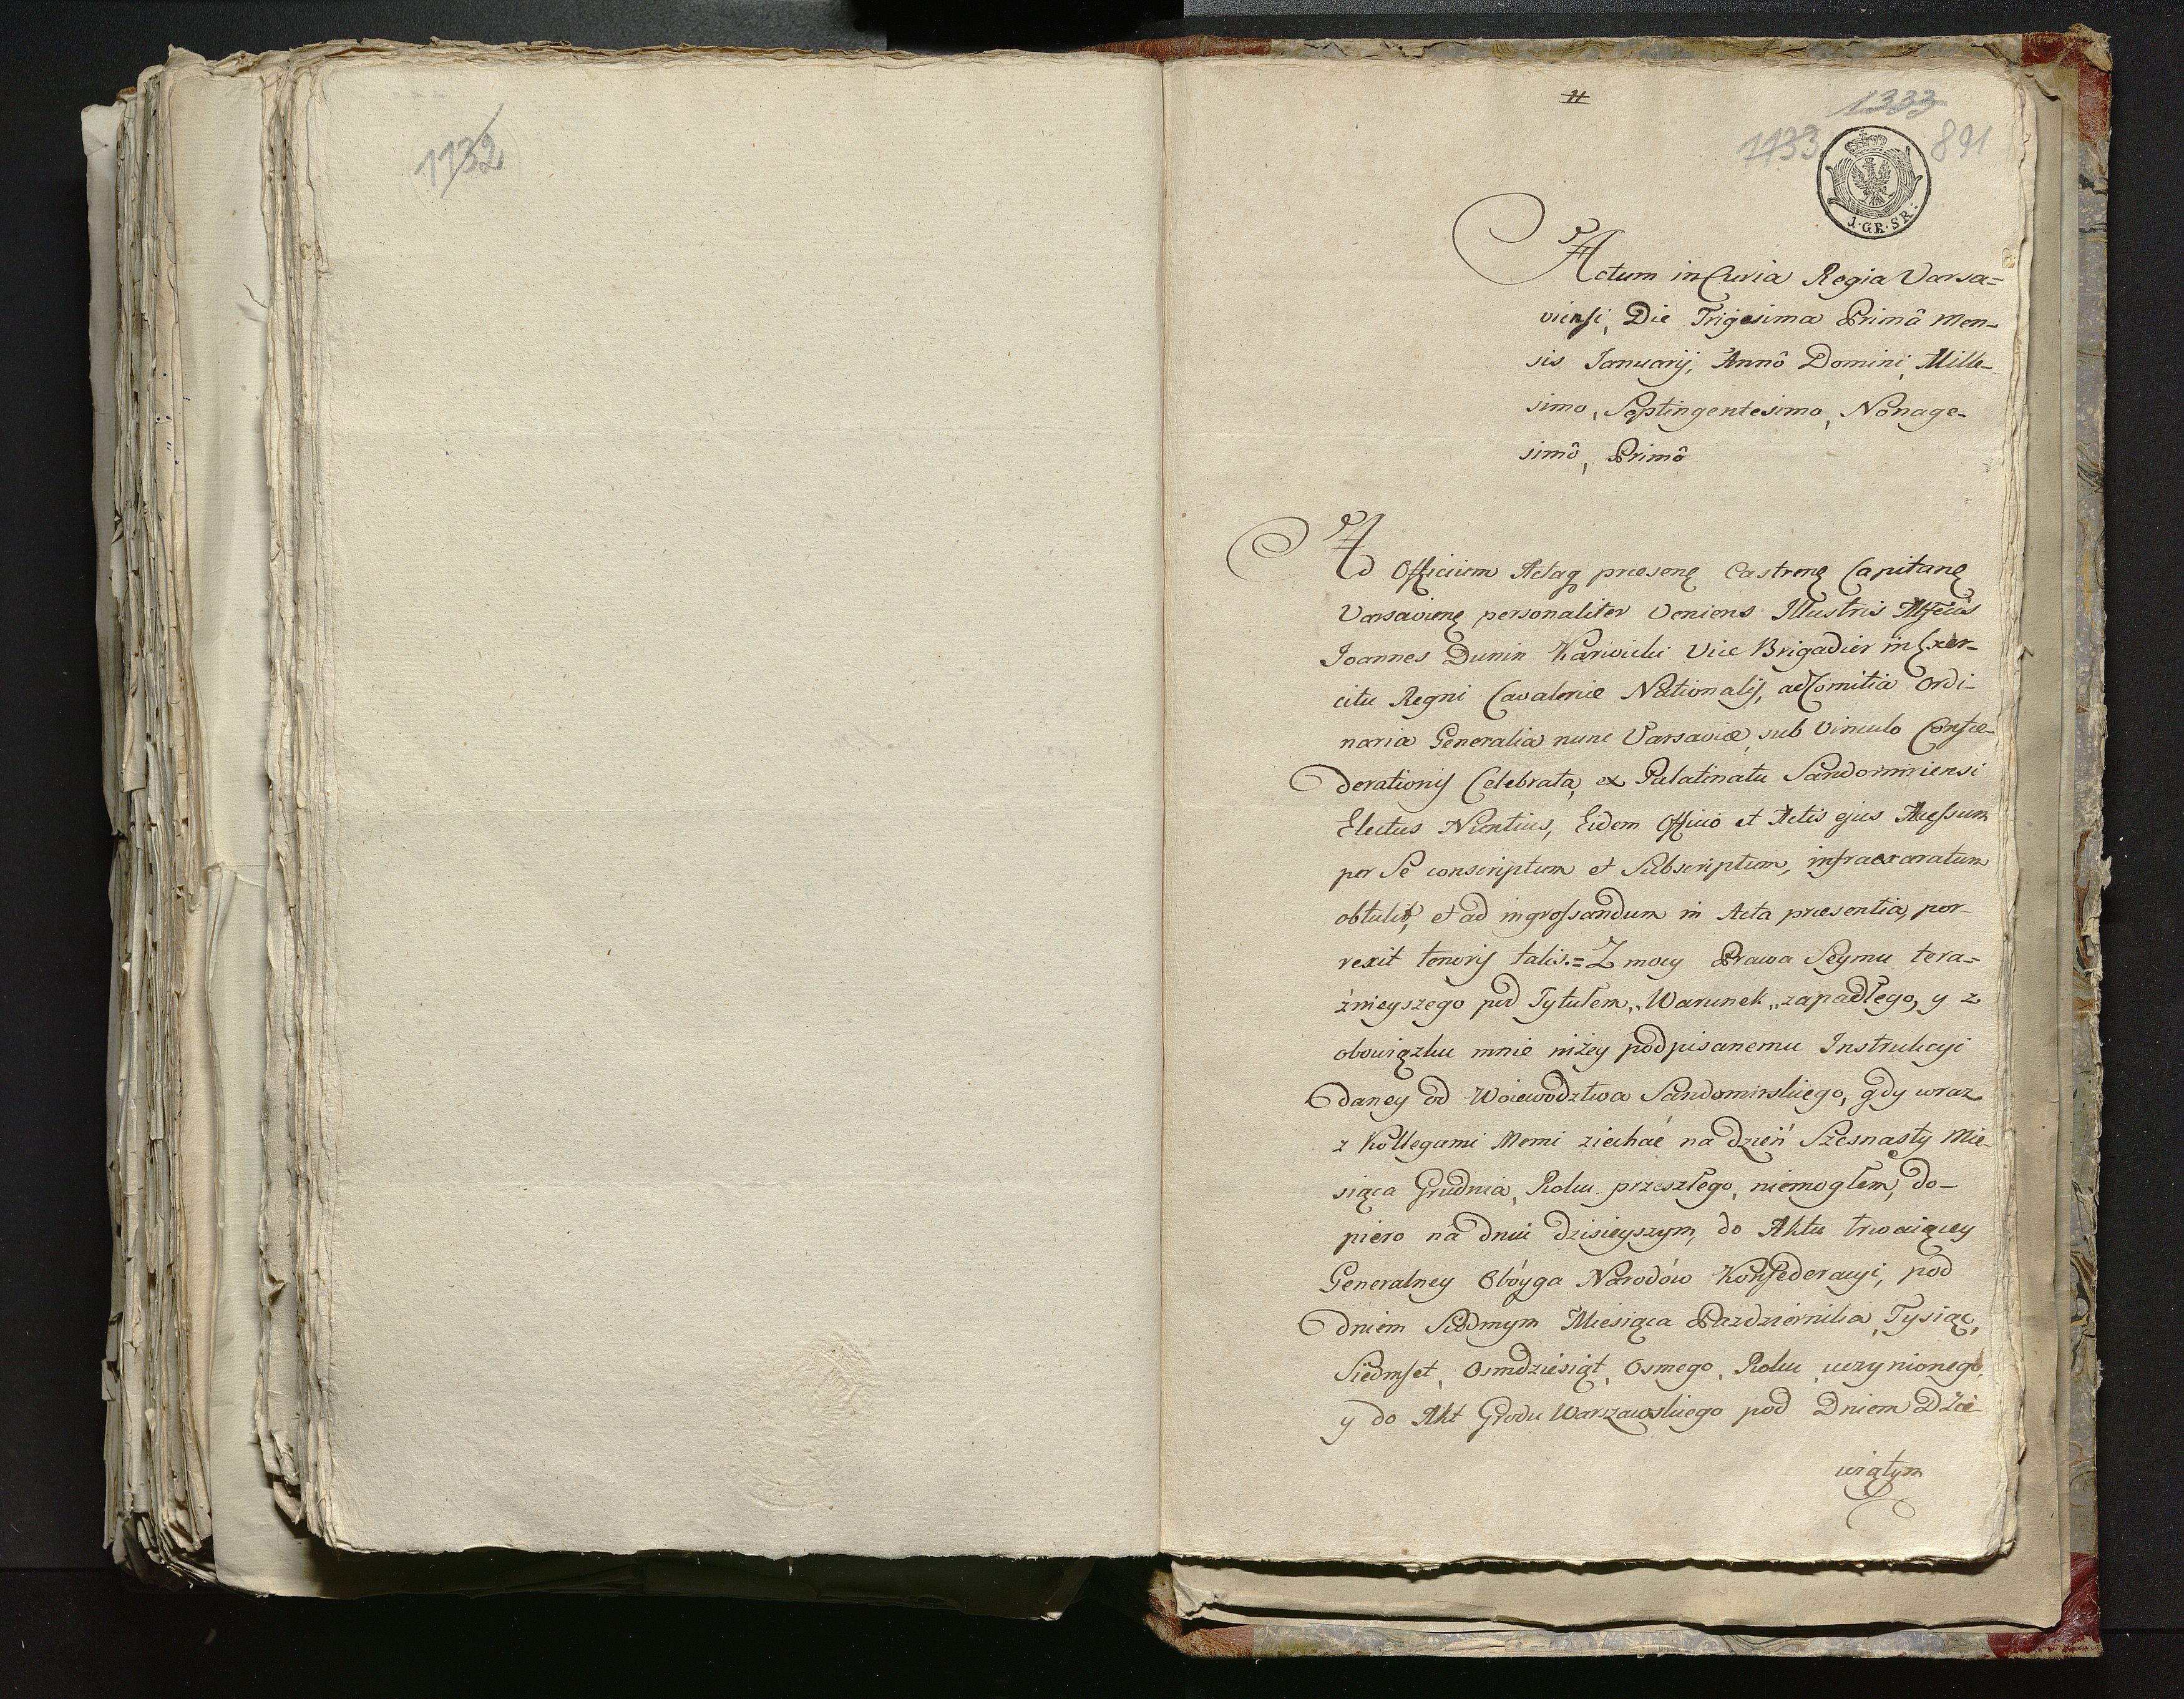 1132
1333
1133
891
1·GR·SR:
Actum in Curia Regia Varsa=
viensi, Die Trigesima Primâ Men-
sis Januarij, Annô Domini, Mille-
simo, Septingentesimo, Nonage-
simô, Primô
Ad Officium Actaq præsenę Castrenę Capitanę
Varsavienę personaliter veniens Illustris Mfcus
Joannes Dunin Karwicki Vice Brigadier in Exer-
citu Regni Cavaleriæ Nationalis, ad Comitia Ordi-
naria Generalia nunc Varsaviæ, sub Vinculo Confæ-
derationis Celebrata, ex Palatinatu Sandomiriensi
Electus Nuntius, Eidem Officio et Actis ejus Accessum
per Se conscriptum et Subscriptum, infraexaratum
obtulit, et ad ingrossandum in Acta præsentia, por-
rexit tenoris talis.= Z mocy Prawa Seymu tera=
źnieyszego pod Tytułem „Warunek„ zapadłego, y z
obowiązku mnie niżey podpisanemu Instrukcyi
daney od Woiewodztwa Sandomirskiego, gdy wraz
z Kollegami Memi ziechać na dzień Szesnasty Mie-
siąca Grudnia, Roku przeszłego, niemogłem, do-
piero na dniu dzisieyszym, do Aktu trwaiącey
Generalney Obóyga Narodów Konfederacyi, pod
dniem Siodmym Miesiąca Pazdziernika, Tysiąc,
Siedmset, Osmdziesiąt, Osmego, Roku, uczynionego,
y do Akt Grodu Warszawskiego pod Dniem Dzie-
wiątym